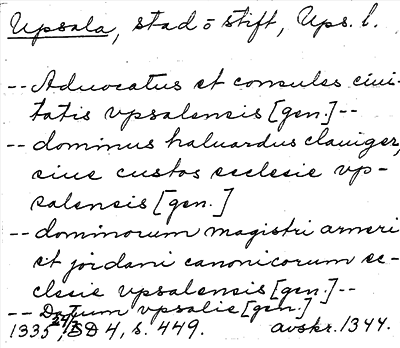 Upsala, stad o stift, Ups. l.
-- Aduocatus et consules ciui-
tatis vpsalensis [gen.] --
-- dominus haluardus clauiger,
siue custos ecclesie vp-
salensis [gen.]
-- dominorum magistri arneri
et jordani canonicorum ec-
clesie vpsalensis [gen.] --
-- Datum vpsalie [gen.]
1335 24/7, SD 4, s. 449. avskr. 1344.